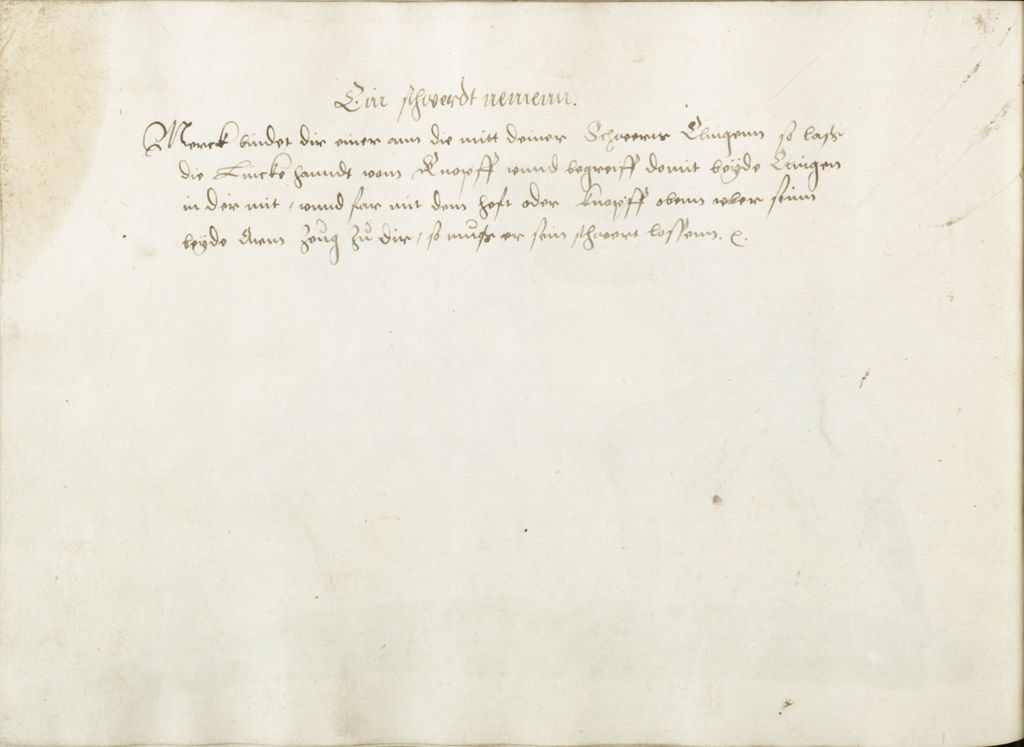 Ein schwerdt nemenn.
Merck bindet dir einer ann die mitt deiner Schwerts Clingenn so lass
die Lincke hanndt vom Knopff vnnd begreiff domit beÿde Clingen
in der mit, vnnd far mit dem heft oder knopff obenn vber seinn
beÿde Arm Zeug Zu dir, so muess er sein schwert lossenn.